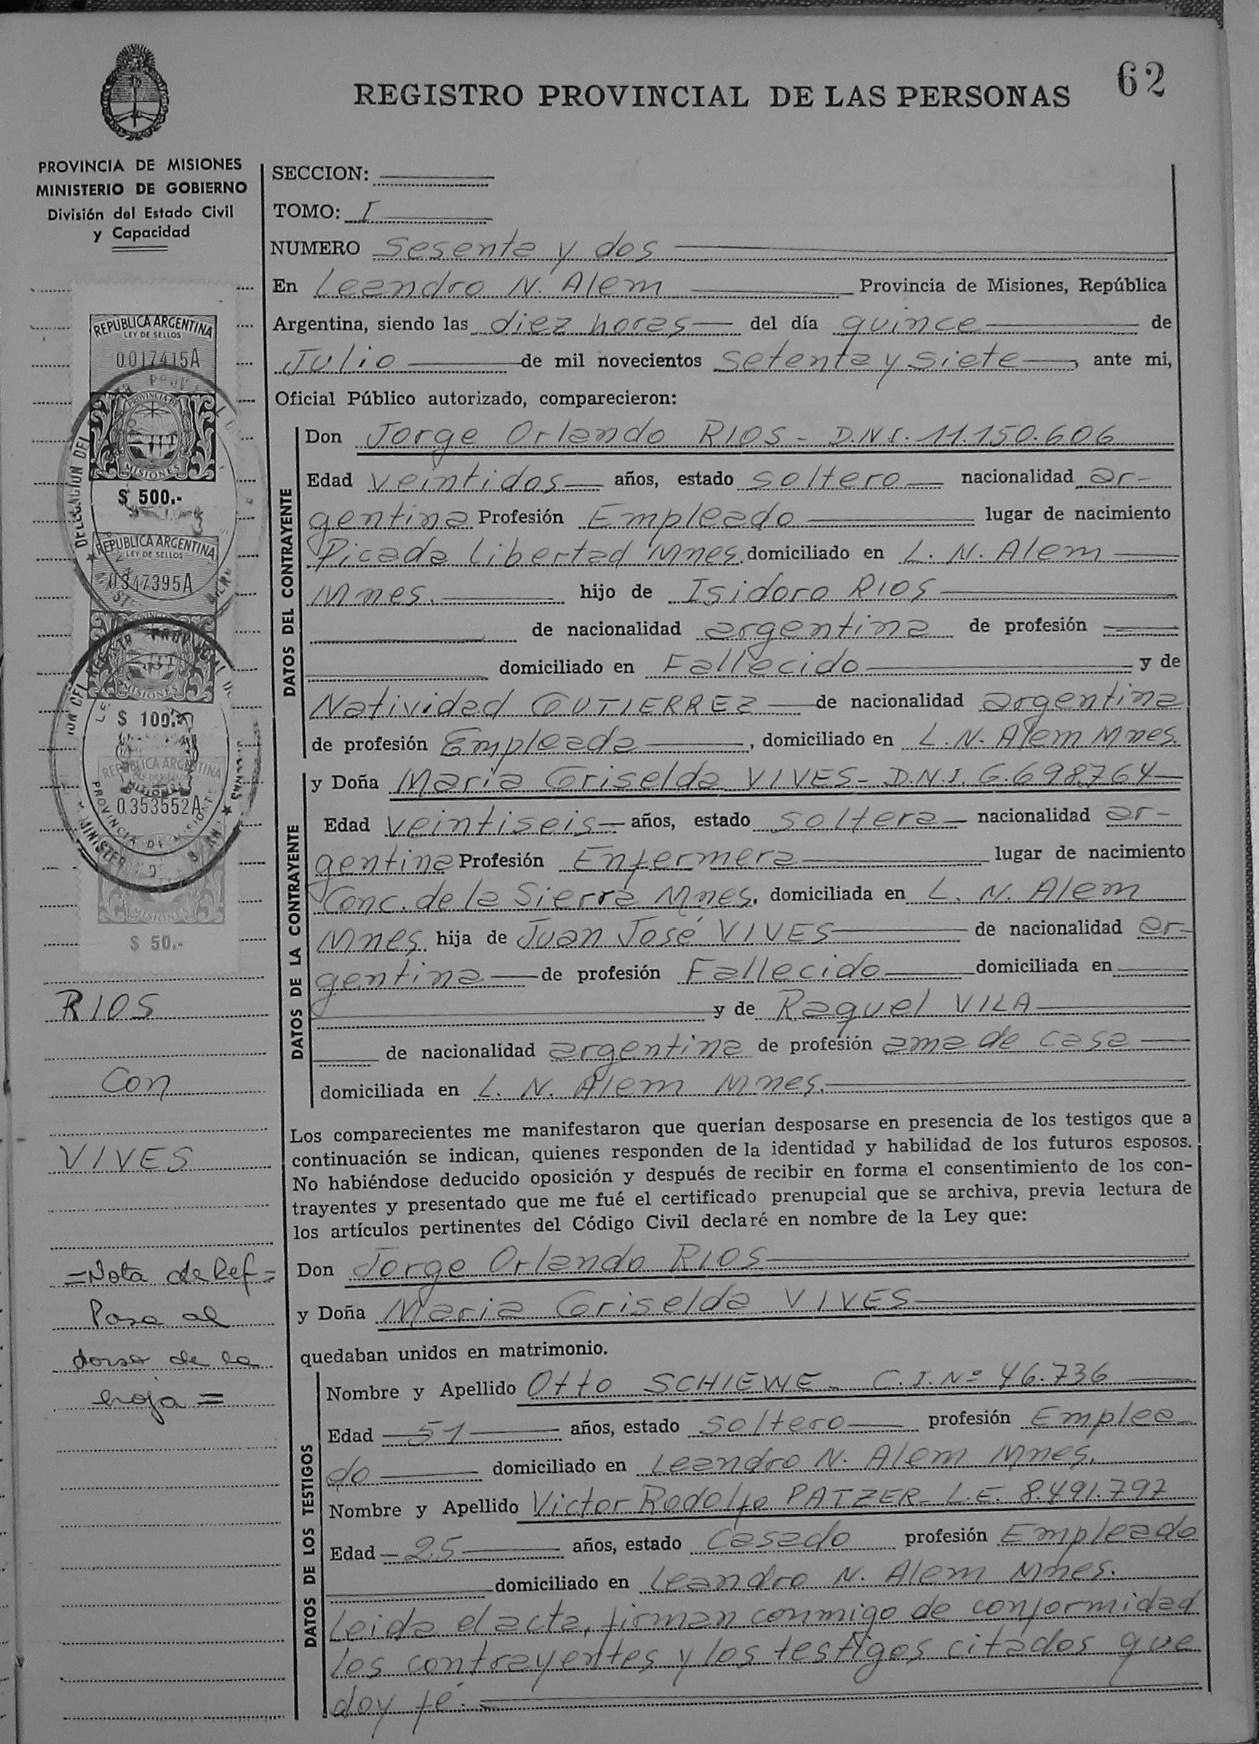 62
REGISTRO PROVINCIAL DE LAS PERSONAS
PROVINCIA DE MISIONES
MINISTERIO DE GOBIERNO
División del Estado Civil
y Capacidad
SECCION:
TOMO: I
NUMERO Sesenta y dos
En Leandro N. Alem Provincia de Misiones, República
Argentina, siendo las diez horas del día quince de
Julio de mil novecientos setenta y siete, ante mi,
Oficial Público autorizado, comparecieron:
DATOS DEL CONTRAYENTE
Don Jorge Orlando RIOS - D.N.I. 11.150.606
Edad veintidos años, estado soltero nacionalidad ar-
gentina Profesión Empleado lugar de nacimiento
Picada Libertad Mnes. domiciliado en L. N. Alem
Mnes. hijo de Isidoro RIOS
de nacionalidad argentina de profesión
domiciliado en Fallecido y de
Natividad GUTIERREZ de nacionalidad argentina
de profesión Empleada, domiciliado en L. N. Alem Mnes.
DATOS DE LA CONTRAYENTE
y Doña Maria Griselda VIVES - D.N.I. 6.698.764
Edad veintiseis años, estado soltera nacionalidad ar-
gentina Profesión Enfermera lugar de nacimiento
Conc. de la Sierra Mnes. domiciliada en L. N. Alem
Mnes. hija de Juan José VIVES de nacionalidad ar-
gentina de profesión Fallecido domiciliada en
y de Raquel VILA
de nacionalidad argentina de profesión ama de casa
domiciliada en L. N. Alem Mnes.
Los comparecientes me manifestaron que querían desposarse en presencia de los testigos que a
continuación se indican, quienes responden de la identidad y habilidad de los futuros esposos.
No habiéndose deducido oposición y después de recibir en forma el consentimiento de los con-
trayentes y presentado que me fué el certificado prenupcial que se archiva, previa lectura de
los artículos pertinentes del Código Civil declaré en nombre de la Ley que:
Don Jorge Orlando RIOS
y Doña Maria Griselda VIVES
quedaban unidos en matrimonio.
DATOS DE LOS TESTIGOS
Nombre y Apellido Otto SCHIEWE - C.I. Nº 46.736
Edad 51 años, estado soltero profesión Emplea
do domiciliado en Leandro N. Alem Mnes.
Nombre y Apellido Victor Rodolfo PATZER - L.E. 8.491.797
Edad 25 años, estado Casado profesión Empleado
domiciliado en Leandro N. Alem Mnes.
Leida el acta, firman conmigo de conformidad
los contrayentes y los testigos citados que
doy fé.
REPUBLICA ARGENTINA
LEY DE SELLOS
0017415A
PROVINCIA DE
MISIONES
$ 500.-
REPUBLICA ARGENTINA
LEY DE SELLOS
0347395A
MISIONES
$ 100.-
REPUBLICA ARGENTINA
0353552A
MISIONES
$ 50.-
RIOS
Con
VIVES
=Nota de Ref=
Pasa al
dorso de la
hoja=